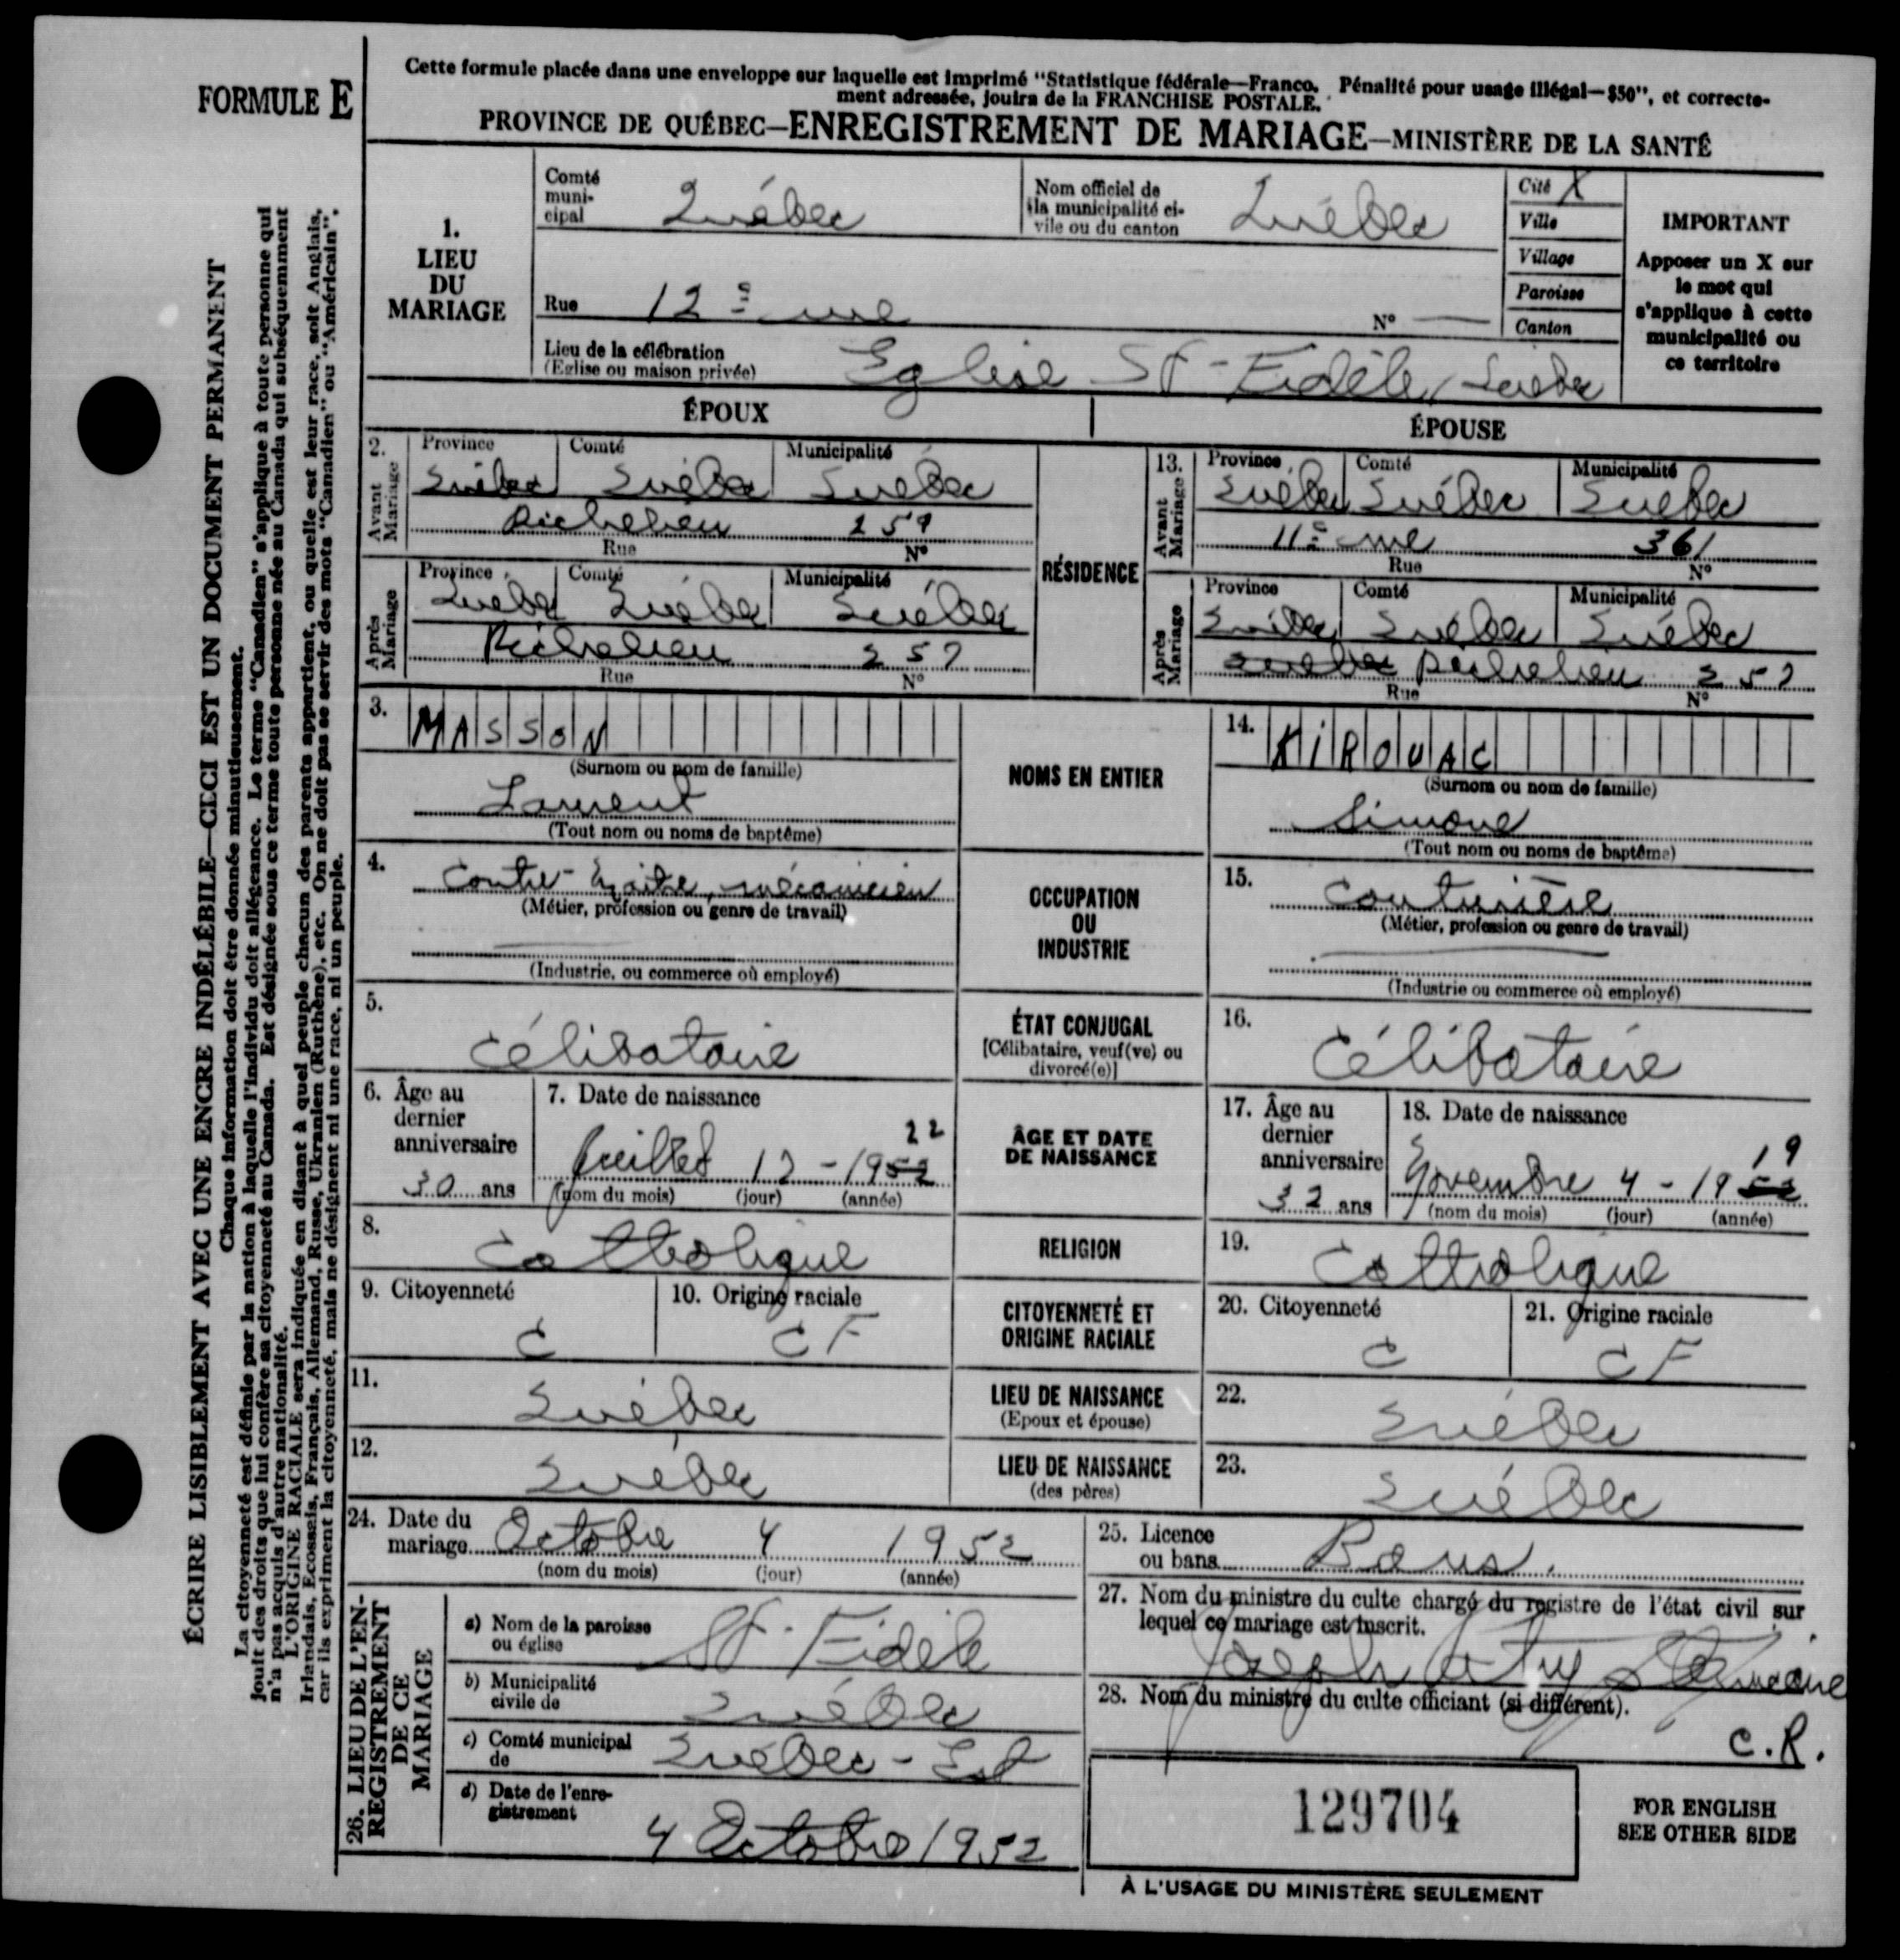 FORMULE E
Cette formule placée dans une enveloppe sur laquelle est imprimé "Statistique fédérale—Franco. Pénalité pour usage illégal—$50", et correcte-
ment adressée, jouira de la FRANCHISE POSTALE.
PROVINCE DE QUÉBEC—ENREGISTREMENT DE MARIAGE—MINISTÈRE DE LA SANTÉ
ÉCRIRE LISIBLEMENT AVEC UNE ENCRE INDÉLÉBILE—CECI EST UN DOCUMENT PERMANENT
Chaque information doit être donnée minutieusement.
La citoyenneté est définie par la nation à laquelle l'individu doit allégeance. Le terme "Canadien" s'applique à toute personne qui
jouit des droits que lui confère sa citoyenneté au Canada. Est désignée sous ce terme toute personne née au Canada qui subséquemment
n'a pas acquis d'autre nationalité.
L'ORIGINE RACIALE sera indiquée en disant à quel peuple chacun des parents appartient, ou quelle est leur race, soit Anglais,
Irlandais, Ecossais, Français, Allemand, Russe, Ukranien (Ruthène), etc. On ne doit pas se servir des mots "Canadien" ou "Américain",
car ils expriment la citoyenneté, mais ne désignent ni une race, ni un peuple.
1.
LIEU
DU
MARIAGE
Comté
muni-
cipal Québec
Nom officiel de
la municipalité ci-
vile ou du canton Québec
Cité X
Ville
Village
Paroisse
Canton
IMPORTANT
Apposer un X sur
le mot qui
s'applique à cette
municipalité ou
ce territoire
Rue 12e rue N° —
Lieu de la célébration
(Eglise ou maison privée) Eglise St-Fidèle, Québec
ÉPOUX
ÉPOUSE
2. Avant Mariage
Province Comté Municipalité
Québec Québec Québec
Richelieu 257
Rue N°
Après Mariage
Province Comté Municipalité
Québec Québec Québec
Richelieu 257
Rue N°
RÉSIDENCE
13. Avant Mariage
Province Comté Municipalité
Québec Québec Québec
11e rue 361
Rue N°
Après Mariage
Province Comté Municipalité
Québec Québec Québec
Québec Richelieu 257
Rue N°
3. MASSON
(Surnom ou nom de famille)
Laurent
(Tout nom ou noms de baptême)
NOMS EN ENTIER
14. KIROUAC
(Surnom ou nom de famille)
Simone
(Tout nom ou noms de baptême)
4. Contre-maître, mécanicien
(Métier, profession ou genre de travail)
(Industrie, ou commerce où employé)
OCCUPATION
OU
INDUSTRIE
15. couturière
(Métier, profession ou genre de travail)
(Industrie ou commerce où employé)
5. célibataire
ÉTAT CONJUGAL
[Célibataire, veuf(ve) ou
divorcé(e)]
16. célibataire
6. Âge au
dernier
anniversaire
30 ans
7. Date de naissance
22
juillet 12 - 1952
(nom du mois) (jour) (année)
ÂGE ET DATE
DE NAISSANCE
17. Âge au
dernier
anniversaire
32 ans
18. Date de naissance
19
Novembre 4 - 1952
(nom du mois) (jour) (année)
8. catholique
RELIGION
19. catholique
9. Citoyenneté
C
10. Origine raciale
CF
CITOYENNETÉ ET
ORIGINE RACIALE
20. Citoyenneté
C
21. Origine raciale
CF
11. Québec
LIEU DE NAISSANCE
(Epoux et épouse)
22. Québec
12. Québec
LIEU DE NAISSANCE
(des pères)
23. Québec
24. Date du
mariage Octobre 4 1952
(nom du mois) (jour) (année)
25. Licence
ou bans Bans.
26. LIEU DE L'EN-
REGISTREMENT
DE CE
MARIAGE
a) Nom de la paroisse
ou église St-Fidèle
b) Municipalité
civile de Québec
c) Comté municipal
de Québec-Est
d) Date de l'enre-
gistrement 4 Octobre 1952
27. Nom du ministre du culte chargé du registre de l'état civil sur
lequel ce mariage est inscrit.
Joseph
28. Nom du ministre du culte officiant (si différent).
C.R.
129704
FOR ENGLISH
SEE OTHER SIDE
À L'USAGE DU MINISTÈRE SEULEMENT